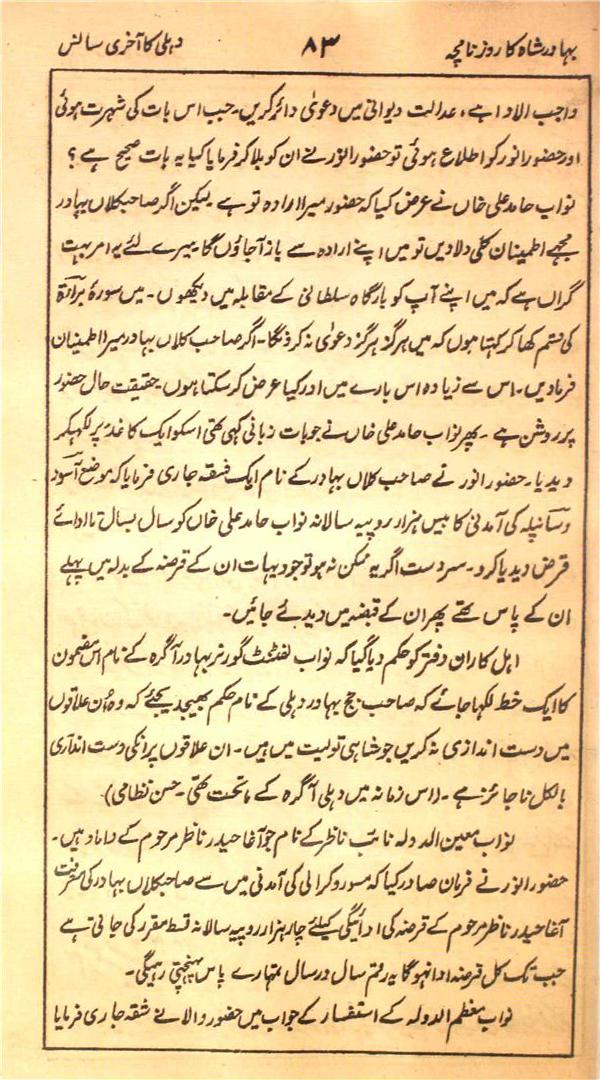 بہادر شاہ کا روزنامچہ ۸۳ دہلی کا آخری سانس
واجب الادا ہے، عدالت دیوانی میں دعویٰ دائر کریں۔ جب اس بات کی شہرت ہوئی
اور حضور انور کو اطلاع ہوئی تو حضور انور نے ان کو بلا کر فرمایا کیا یہ بات صحیح ہے؟
نواب حامد علی خاں نے عرض کیا کہ حضور میرا ارادہ تو ہے۔ لیکن اگر صاحب کلاں بہادر
مجھے اطمینان کلی دلا دیں تو میں اپنے ارادہ سے باز آجاؤں گا۔ میرے لئے یہ امر بہت
گراں ہے کہ میں اپنے آپ کو بارگاہ سلطانی کے مقابلہ میں دیکھوں۔ میں سورۂ برأۃ
کی قسم کھا کر کہتا ہوں کہ میں ہرگز ہرگز دعویٰ نہ کرونگا۔ اگر صاحب کلاں بہادر میرا اطمینان
فرمادیں۔ اس سے زیادہ اس بارے میں اور کیا عرض کر سکتا ہوں۔ حقیقت حال حضور
پر روشن ہے۔ پھر نواب حامد علی خاں نے جو بات زبانی کہی تھی اسکو ایک کاغذ پر لکھکر
دیدیا۔ حضور انور نے صاحب کلاں بہادر کے نام ایک شقہ جاری فرمایا کہ موضع آسود
و سانپلہ کی آمدنی کا بیس ہزار روپیہ سالانہ نواب حامد علی خاں کو سال بسال تا ادائے
قرض دیدیا کرو۔ سردست اگر یہ ممکن نہ ہو تو جو دیہات ان کے قرضہ کے بدلہ میں پہلے
ان کے پاس تھے پھر ان کے قبضہ میں دیدئے جائیں۔
اہل کاران دفتر کو حکم دیا گیا کہ نواب لفٹنٹ گورنر بہادر آگرہ کے نام اس مضمون
کا ایک خط لکھا جائے کہ صاحب جج بہادر دہلی کے نام حکم بھیجدیجئے کہ وہ اُن علاقوں
میں دست اندازی نہ کریں جو شاہی تولیت میں ہیں۔ ان علاقوں پر انکی دست اندازی
بالکل ناجائز ہے۔ (اس زمانہ میں دہلی آگرہ کے ماتحت تھی۔ حسن نظامی)
نواب معین الدولہ نائب ناظر کے نام جو آغا حیدر ناظر مرحوم کے داماد ہیں۔
حضور انور نے فرمان صادر کیا کہ کی آمدنی میں سے صاحب کلاں بہادر کی معرفت
آغا حیدر ناظر مرحوم کے قرضہ کی ادائیگی کیلئے چار ہزار روپیہ سالانہ قسط مقرر کی جاتی ہے
جب تک کل قرضہ ادا نہو گا یہ رقم سال در سال تمہارے پاس پہنچتی رہیگی۔
نواب معظم الدولہ کے استفسار کے جواب میں حضور والا نے شقہ جاری فرمایا